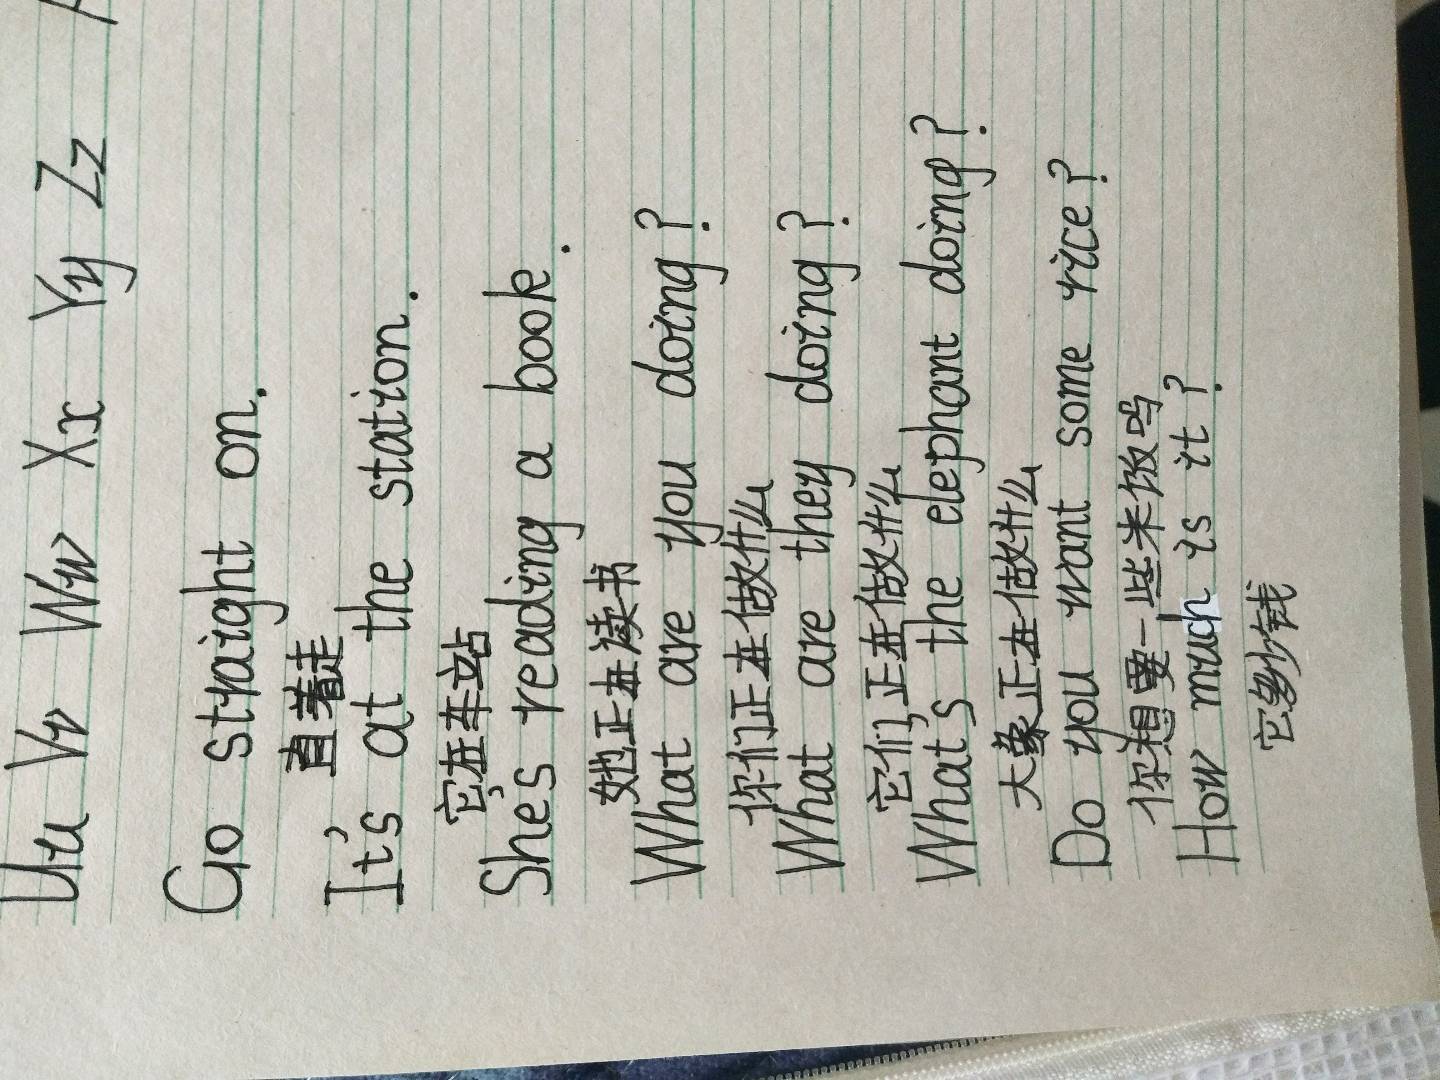 Uu Vv Ww Xx Yy Zz
Go straight on.
直着走
It's at the station.
它在车站
Shes reading a book.
她正在读书
What are you doing?
你们正在做什么
What are they doing?
它们正在做什么
Whats the elephant doing?
大象正在做什么
Do you want some rice?
你想要一些米饭吗
How much is it?
它多少钱